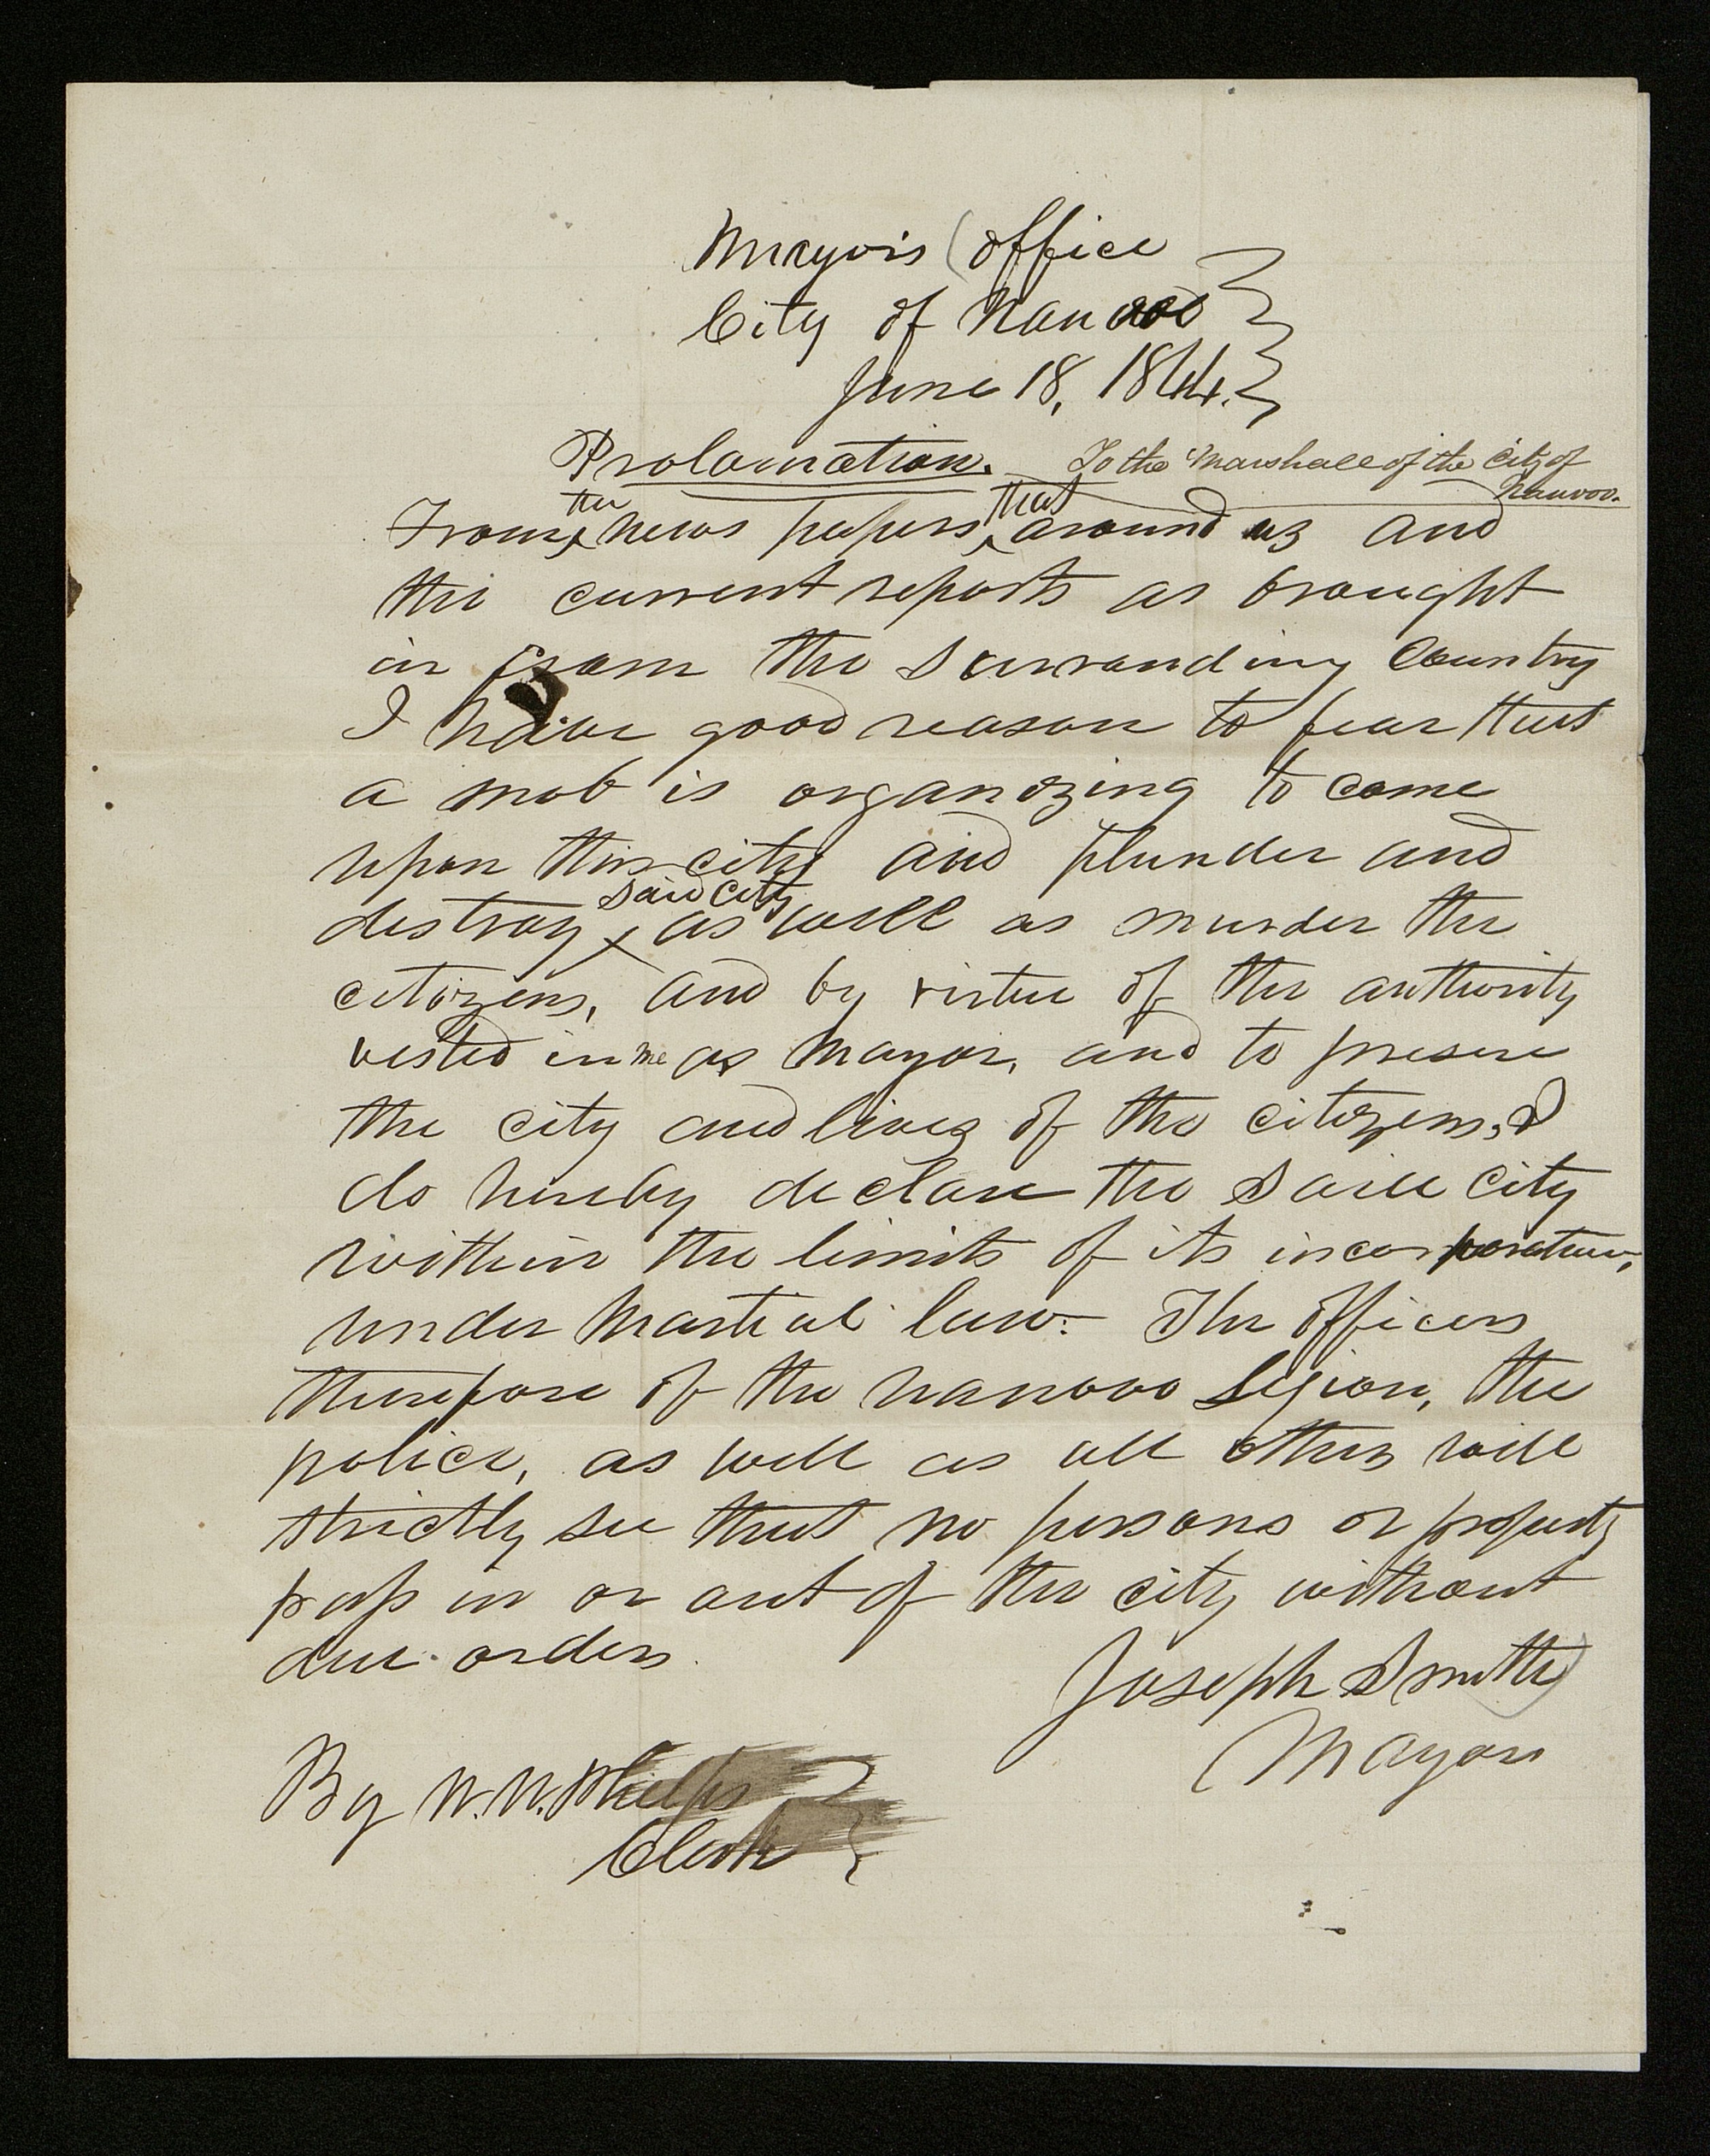 Mayors Office
City of Nauvoo
June 18, 1844.
Proclamation. To the Marshall of the City of
Nauvoo.
From ^the^ news papers, ^that^ around us and
the current reports as brought
in from the surrounding Country
I have good reason to fear that
a mob is organizing to come
upon this city and plunder and
destroy ^said city^ as well as murder the
citizens, and by virtue of the authority
vested in me as Mayor, and to preserve
the city and lives of the citizens, I
do hereby declare the said City
within the limits of its incorporation,
under Martial law. The officers
therefore of the nauvoo Legion, the
police, as well as all others will
strictly see that no persons or property
pass in or out of the city without
due orders.
Joseph Smith
Mayor
By W. W. Phelps
Clerk